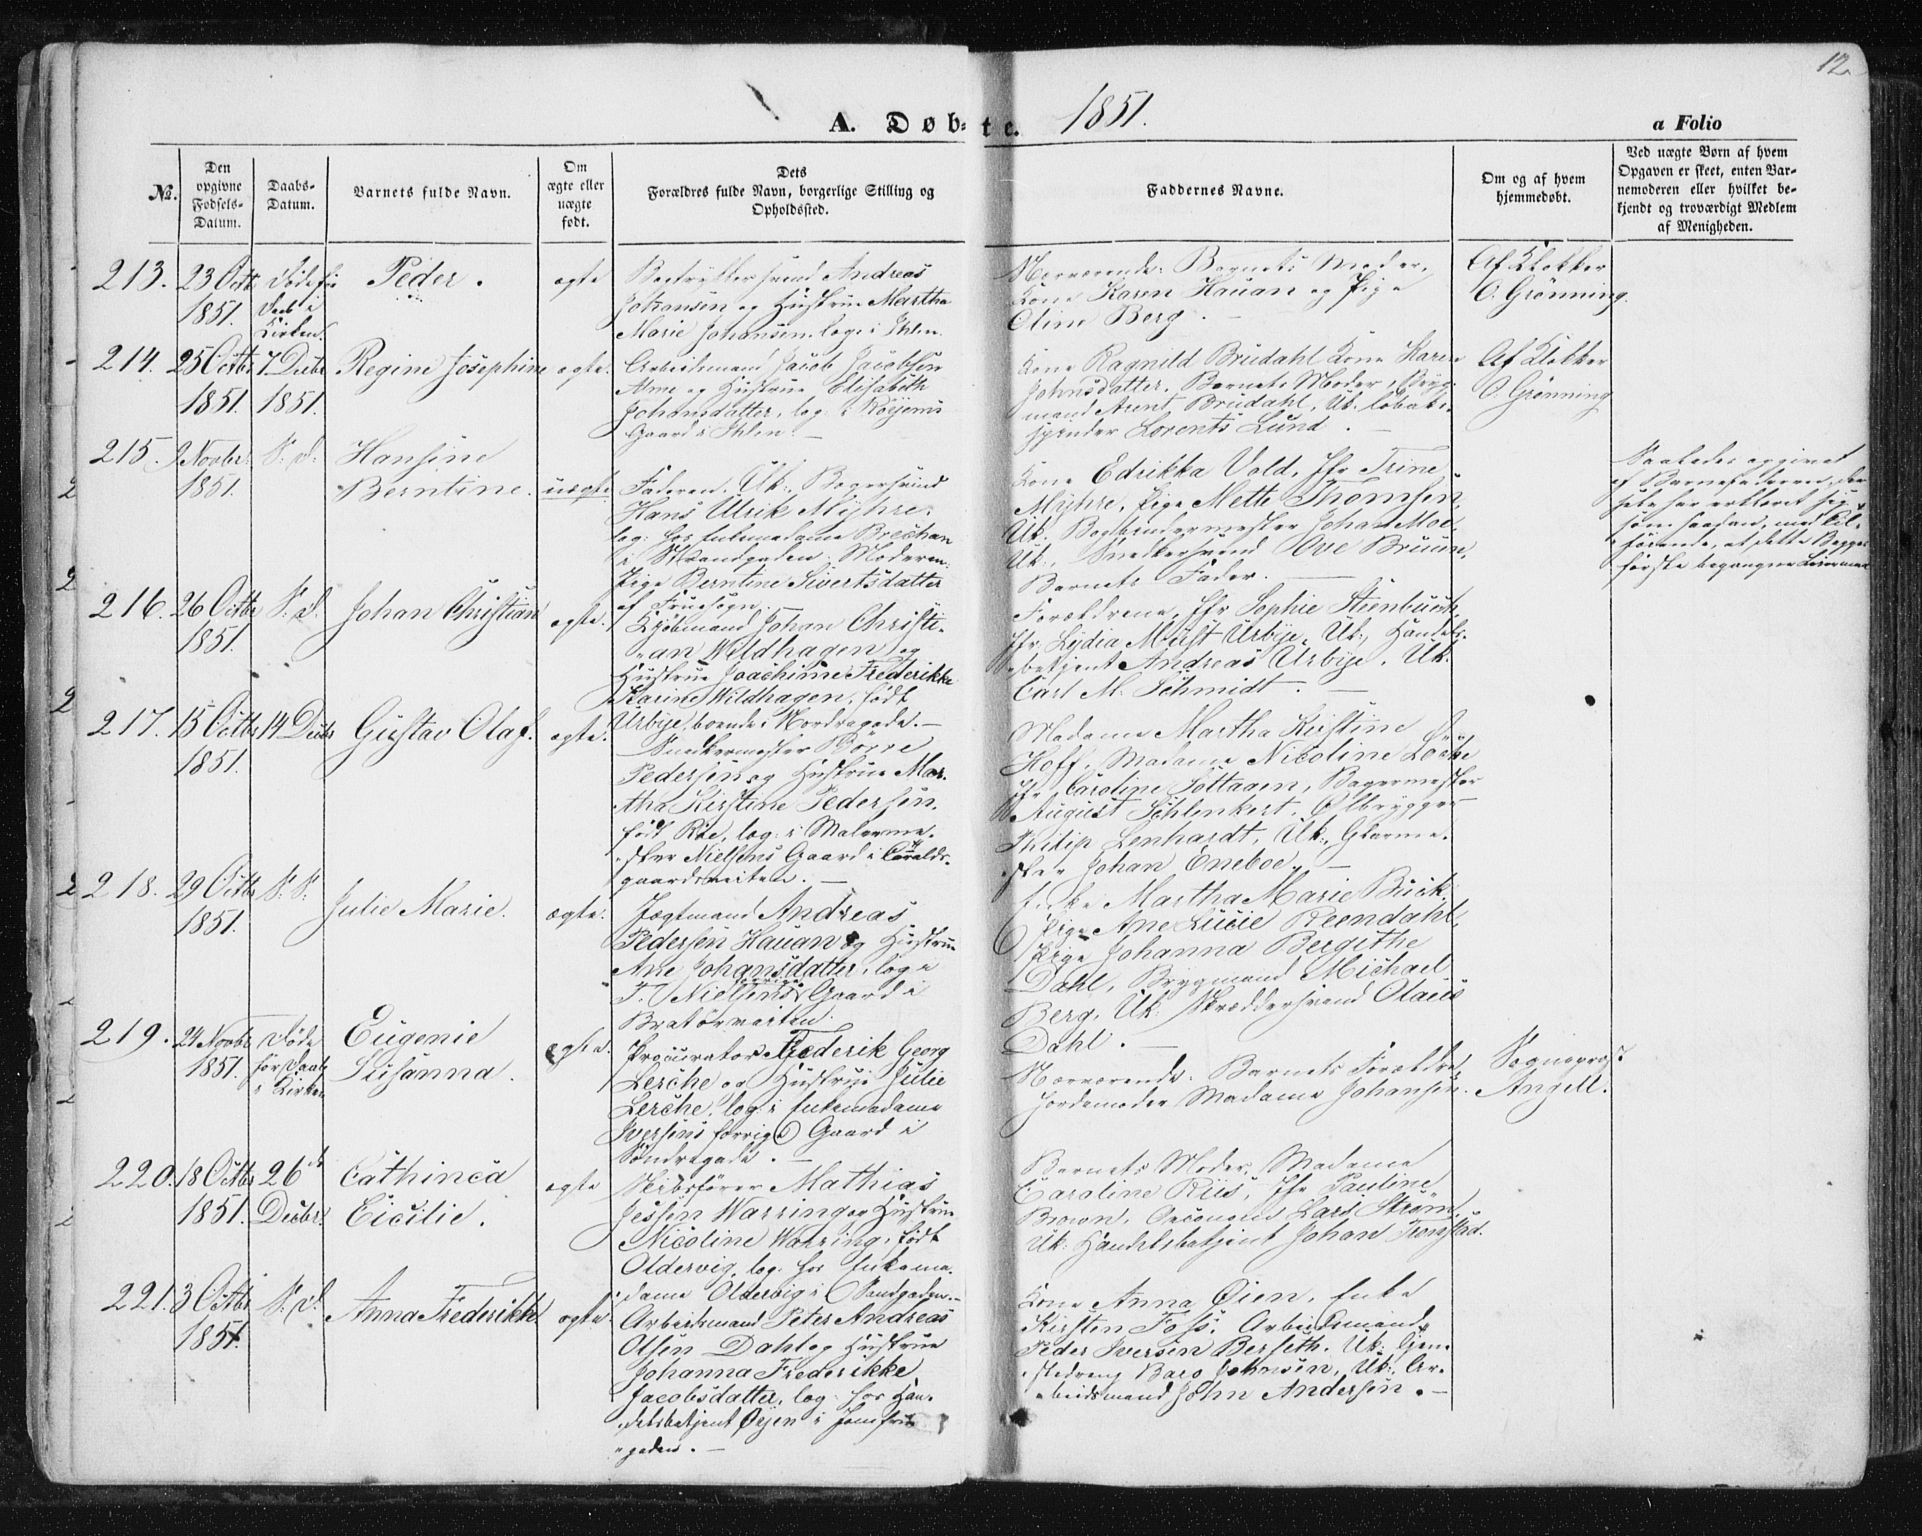 12.
A. Døbte. 1851.
a Folio
No.
Den opgivne Fødsels-Datum.
Daabs-Datum.
Barnets fulde Navn.
Om ægte eller uægte født.
Dets Forældres fulde Navn, borgerlige Stilling og Opholdssted.
Faddernes Navne.
Om og af hvem hjemmedøbt.
Ved uægte Børn af hvem Opgaven er skeet, enten Barnemoderen eller hvilket bekjendt og troværdigt Medlem af Menigheden.
213. 23 Octbr 1851.
Døde før Daab i Kirken
Peder.
ægte
Svend Andreas
Johansen og Hustrue Martha
Marie Johansen, log: i Ihlen.
Nærværende: Barnets Moder,
Kone Karen Hauan og Pige
Oline Berg.
Af Klokker
O. Grønning.
214. 25 Octbr 1851.
7 Decbr 1851.
Regine Josephine
ægte.
Arbeidsmand Jacob Jacobsen
Alme og Hustrue Elisabeth
Johansdatter, log: i
Gaard i Ihlen.
Kone Ragnild Brudahl, Kone Karen
Johnsdatter, Barnets Moder, Bryg-
mand Arent Brudahl, Uk:
Lorents Lund.
Af Klokker
O. Grønning
215. 2 Novbr 1851.
S. D.
Hansine
Berntine.
uægte
Faderen, Uk: Bagersvend
Hans Ulrik Myhre,
log: hos Enkemadame Brechan
i Strandgaden. Moderen:
Pige Berntine Sivertsdatter
af Fruesogn.
Kone Edrikka Vold, Jfr Trine
Myhre, Pige Mette Thomsen,
Uk. Bogbindermester Johan Moe,
Uk: Snedkersvend Ove Bruun,
Barnets Fader.
Saaledes opgivet
af Barnefaderen, der
har erklæret sig
som saadan, med Til-
førende, at dette Begges
første begangne Leiermaal
216. 26 Octbr 1851.
S. D.
Johan Christian
ægte.
Kjøbmand Johan Christi-
an Wildhagen og
Hustrue Joachime Frederikke
Karine Wildhagen, født
Urbye boende i Nordregade.
Forældrene, Jfr Sophie Steinbuch,
Jfr Lydia Must Urbye, Uk: Handels-
betjent Andreas Urbye, Uk.
Carl M. Schmidt.
217. 15 Octbr 1851.
14 Decbr
Gustav Olaf.
ægte.
Snedkermester Børre
Pedersen og Hustrue Mar-
tha Kirstine Pedersen,
født Roe, log: i Malerme-
ster Nielsens Gaard i
gaardsveiten.
Madame Martha Kirstine
Hoff, Madame Nicoline Løche
Jfr Caroline Sottaaen, Bagermester
August Schlenkert, Ølbrygger
Philip Lenhardt, Uk: Glarme-
ster Johan Eneboe.
218. 29 Octbr 1851.
S. D.
Julie Marie.
ægte.
Jægtmand Andreas
Pedersen Hauan og Hustrue
Ane Johansdatter, log: i
T. Nielsens forrige Gaard i
Bratørveiten.
Enke Martha Marie Buck,
Pige Ane Lucie Reendahl,
Pige Johanna Bergithe
Dahl, Brygmand Michael
Berg, Uk: Skræddersvend Olaus
Dahl.
219. 24 Novbr 1851.
Døde før Daab i Kirken
Eugenie
Susanna.
ægte.
Procurator Frederik Georg
Lerche og Hustrue Julie
Lerche, log: i Enkemadame
Iversens forrige Gaard i
Søndregade.
Nærværende: Barnets Forældre,
Jordemoder Madame Johansen.
Sogneprest
Angell.
220. 18 Octbr 1851.
26de Decbr.
Cathinca
Cicilie.
ægte
Skibsfører Mathias
Jessen Warring og Hustrue
Nicoline Warring, født
Oldervig, log: hos Enkema-
dame Oldervig i Sandgaden.
Barnets Moder, Madame
Caroline Riis, Jfr Pauline
Brown, Oeconom Lars Strøm,
Uk: Handelsbetjent Johan Tronstad.
221. 3 Octbr 1851
S. D.
Anna Frederikke
ægte.
Arbeidsmand Peter Andreas
Olsen Dahl og Hustrue
Johanna Frederikke
Jacobsdatter, log: hos Han-
delsbetjent Øijen i Jomfrue-
gaden.
Kone Anna Øien, Enke
Kirsten Foss, Arbeidsmand
Peder Iversen Berseth, Uk:
Johnsen, Uk: Ar-
beidsmand John Andersen.